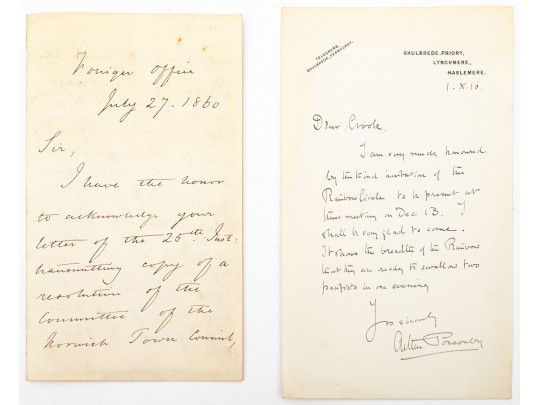 Foreign Office
July 27. 1860
Sir,
I have the honor
to acknowledge your
letter of the 25th Inst:
transmitting copy of a
resolution of the
Committee of the
Norwich Town Council,
TELEGRAMS,
SHULBREDE, FERNHURST.
SHULBREDE PRIORY,
LYNCHMERE,
HASLEMERE.
1. X. 16.
Dear Crook,
I am very much honoured
by the kind invitation of the
Rainbow Circle to be present at
their meeting on Dec 13. I
shall be very glad to come.
It shows the breadth of the Rainbow
that they are ready to swallow two
pacifists in one evening
Yrs sincerely
Arthur Ponsonby